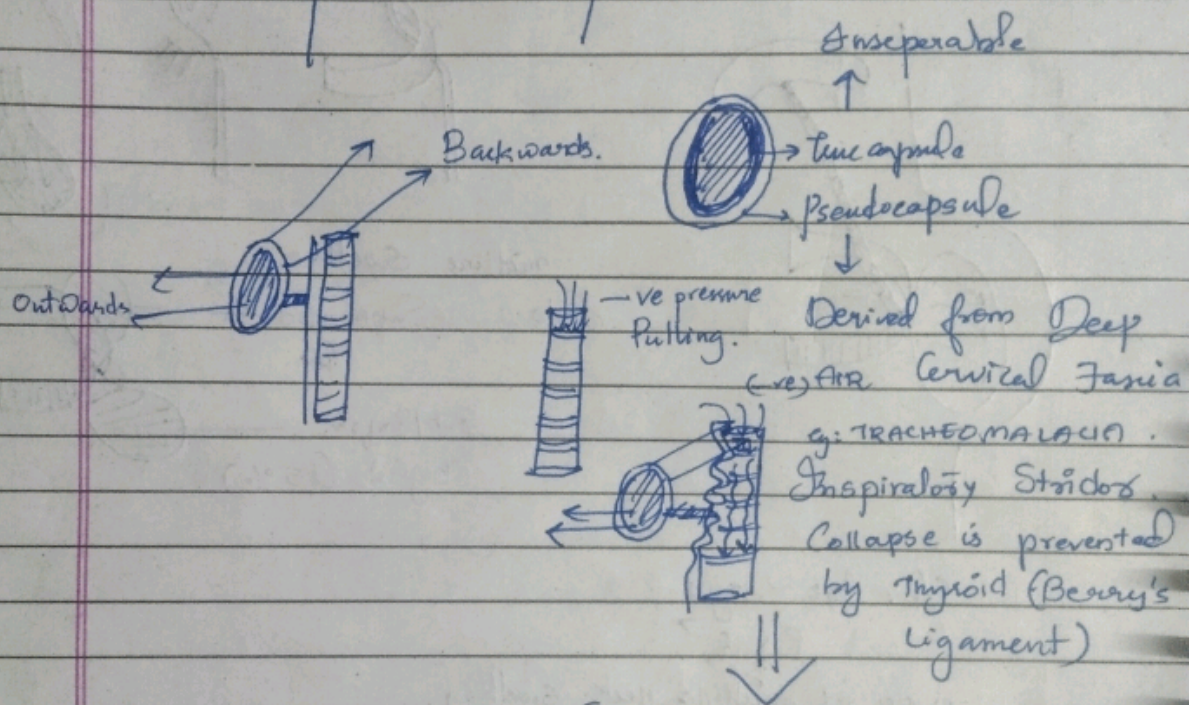 Inseperable
Backwards.
true capsule
Pseudocapsule
Outwards
-ve pressure
Pulling.
Derived from Deep
Cervical Fascia
(-ve) AIR
eg: TRACHEOMALACIA.
Inspiratory Stridor.
Collapse is prevented
by Thyroid (Berry's
Ligament)